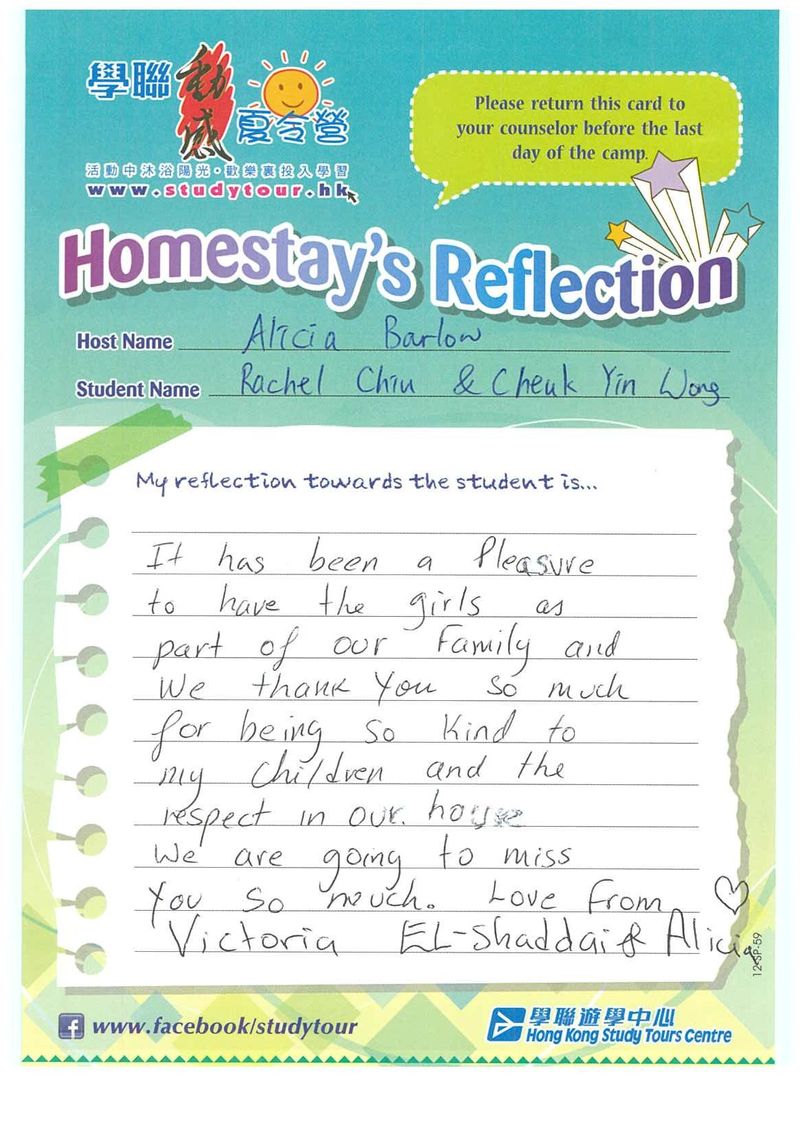 學聯
動感
夏令營
活動中沐浴陽光·歡樂裏投入學習
www.studytour.hk
Please return this card to
your counselor before the last
day of the camp.
Homestay's Reflection
Host Name Alicia Barlow
Student Name Rachel Chiu & Cheuk Yin Wong
My reflection towards the student is...
It has been a Pleasure
to have the girls as
part of our Family and
We thank You so much
for being so kind to
my children and the
respect in our house
We are going to miss
You so much. Love From ♡
Victoria EL-Shaddai & Alicia
12-SP-59
www.facebook/studytour
學聯遊學中心
Hong Kong Study Tours Centre